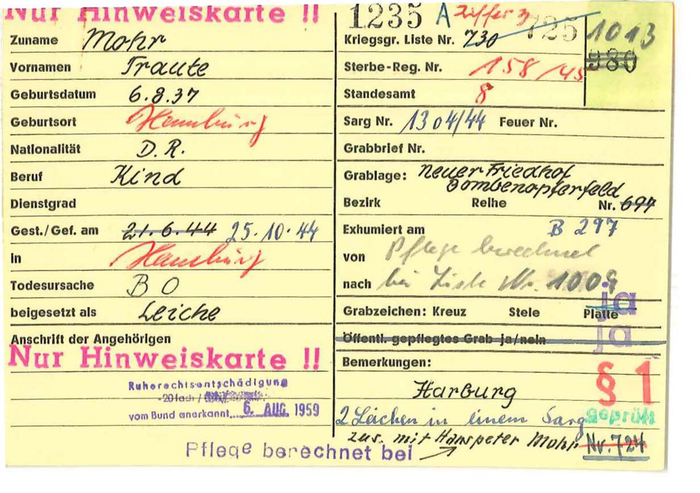 Nur Hinweiskarte !!
Zuname Mohr
Vornamen Traute
Geburtsdatum 6.8.37
Geburtsort Hamburg
Nationalität D.R.
Beruf Kind
Dienstgrad
Gest./Gef. am 21.6.44 25.10.44
in Hamburg
Todesursache BO
beigesetzt als Leiche
Anschrift der Angehörigen
Nur Hinweiskarte !!
Ruherechtsentschädigung
-20fach/
vom Bund anerkannt 6. AUG. 1959
1235 A Ziffer 3 725 1013
Kriegsgr. Liste Nr. 730 980
Sterbe-Reg. Nr. 158/45
Standesamt 8
Sarg Nr. 1304/44 Feuer Nr.
Grabbrief Nr.
Grablage: neuer Friedhof
Bombenopferfeld
Bezirk Reihe Nr. 694
Exhumiert am B 297
von Pflege berechnet
nach bei Liste Nr. 1009
ja
Grabzeichen: Kreuz Stele Platte
ja
Öffentl. gepflegtes Grab ja/nein
Bemerkungen:
§ 1
Harburg
geprüft
2 Leichen in einem Sarg
zus. mit Hanspeter Mohr Nr. 724
Pflege berechnet bei